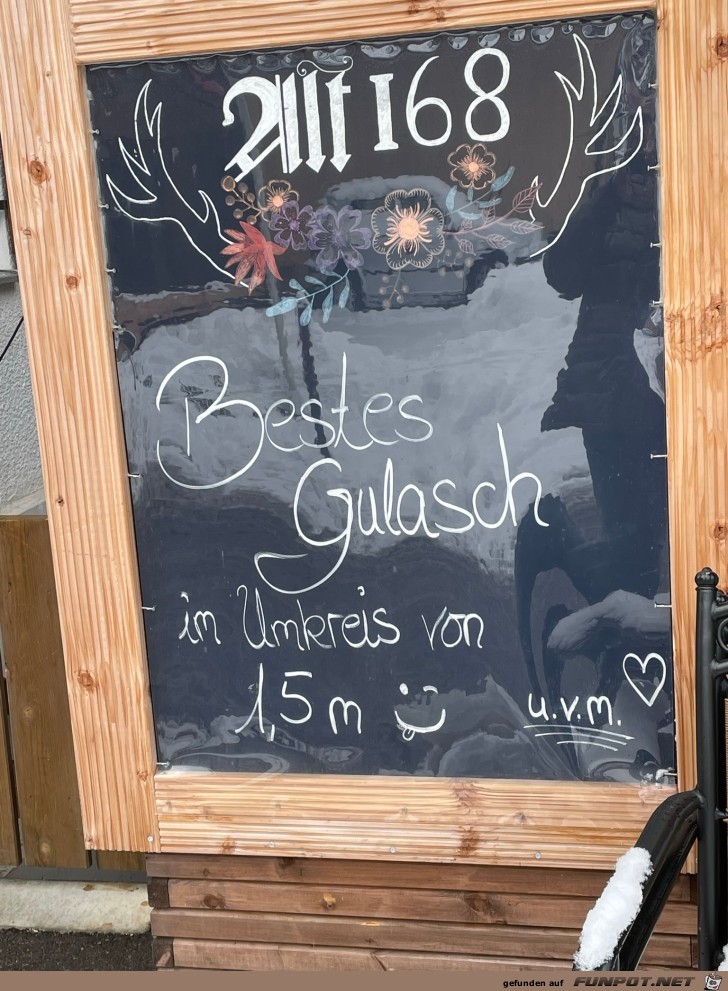 Alt 168
Bestes
Gulasch
im Umkreis von
1,5 m
u.v.m.
gefunden auf FUNPOT.NET